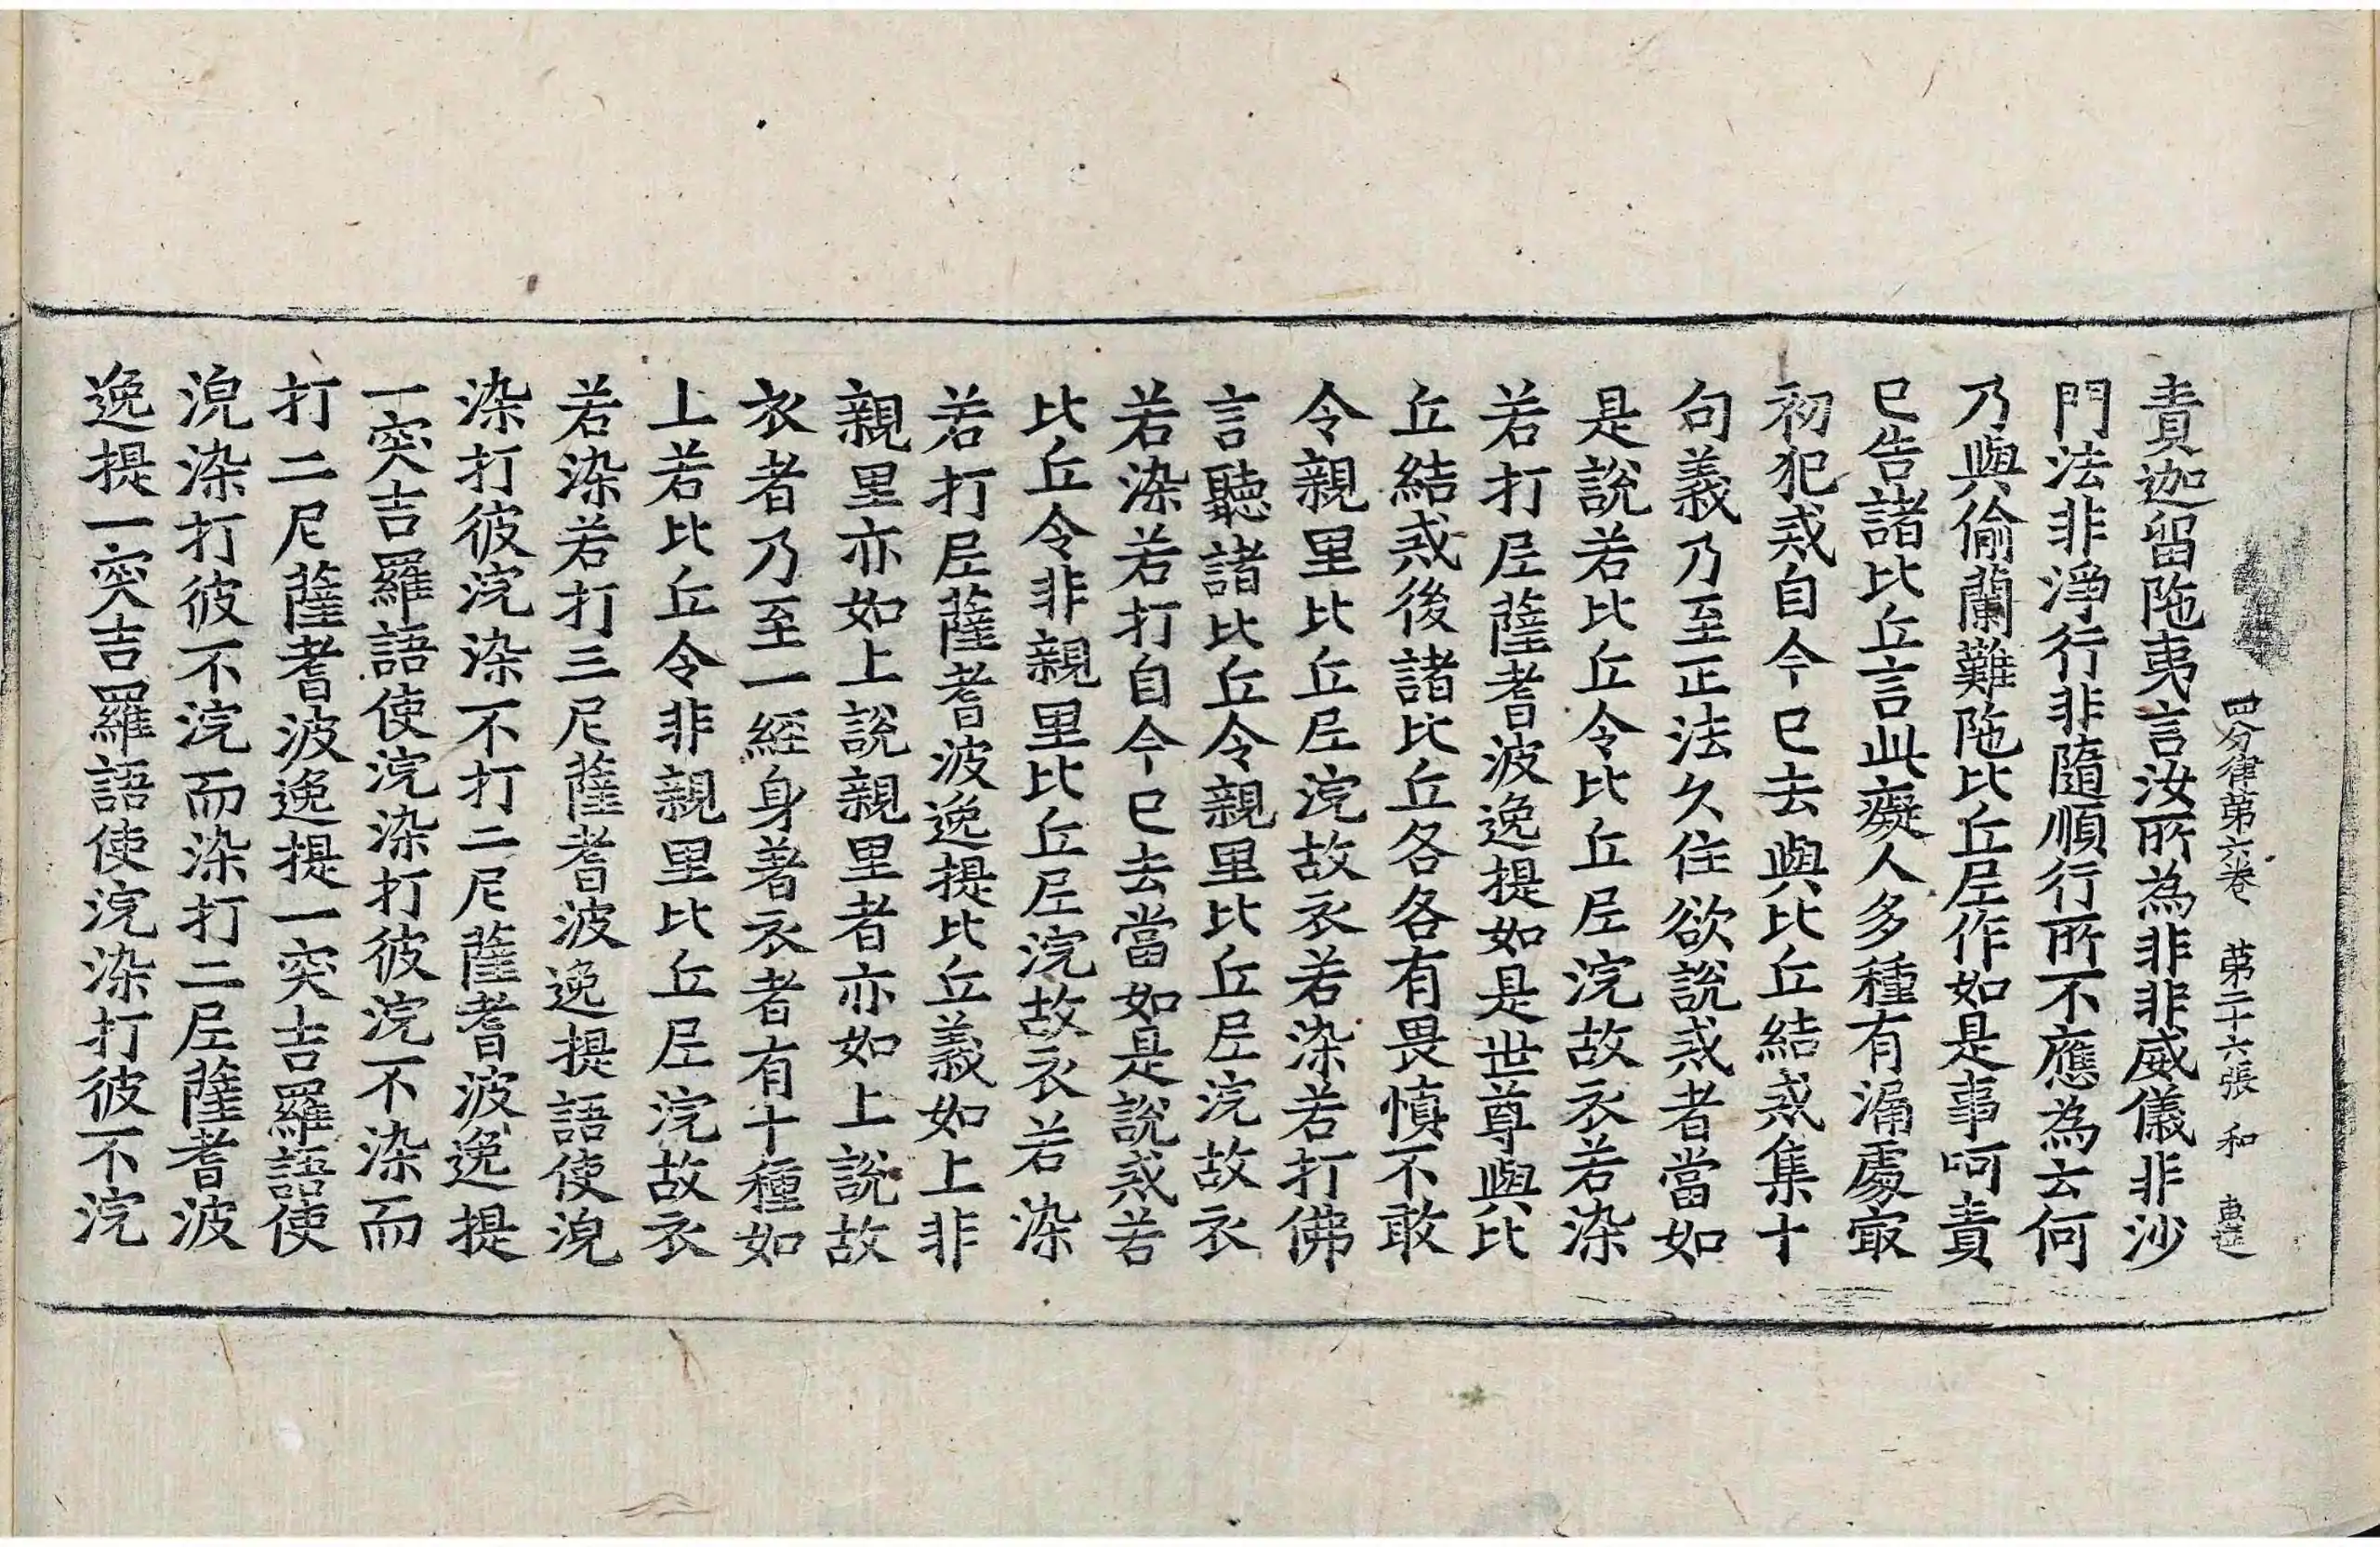 四分律第六卷　第二十六張　和
責迦留陁夷言汝所為非非威儀非沙
門法非淨行非隨順行所不應為云何
乃與偷蘭難陁比丘尼作如是事呵責
已告諸比丘言此癡人多種有漏處㝡
初犯戒自今已去與比丘結戒集十
句義乃至正法久住欲說戒者當如
是說若比丘令比丘尼浣故衣若染
若打尼薩耆波逸提如是世尊與比
丘結戒後諸比丘各各有畏慎不敢
令親里比丘尼浣故衣若染若打佛
言聽諸比丘令親里比丘尼浣故衣
若染若打自今已去當如是說戒若
比丘令非親里比丘尼浣故衣若染
若打尼薩耆波逸提比丘義如上非
親里亦如上說親里者亦如上說故
衣者乃至一經身著衣者有十種如
上若比丘令非親里比丘尼浣故衣
若染若打三尼薩耆波逸提語使浣
染打彼浣染不打二尼薩耆波逸提
一突吉羅語使浣染打彼浣不染而
打二尼薩耆波逸提一突吉羅語使
浣染打彼不浣而染打二尼薩耆波
逸提一突吉羅語使浣染打彼不浣